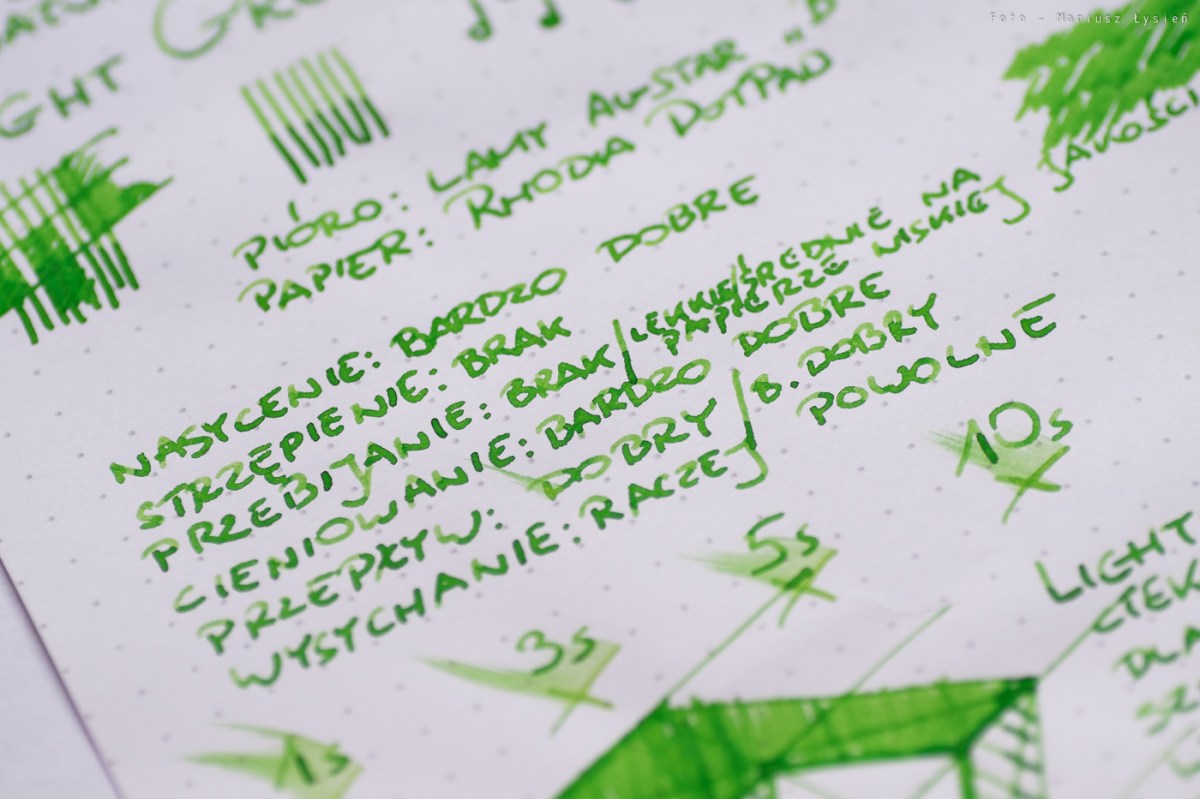 Foto - Mariusz Łysień
GHT
PIÓRO: LAMY AL-STAR "B
PAPIER: RHODIA DOTPAD
NASYCENIE: BARDZO DOBRE
STRZĘPIENIE: BRAK
PRZEBIJANIE: BRAK/LEKKIE/ŚREDNIE NA
PAPIERZE NISKIEJ JAKOŚCI
CIENIOWANIE: BARDZO DOBRE
PRZEPŁYW: DOBRY/B. DOBRY
WYSYCHANIE: RACZEJ POWOLNE
1s
3s
5s
10s
LIGHT
DLA